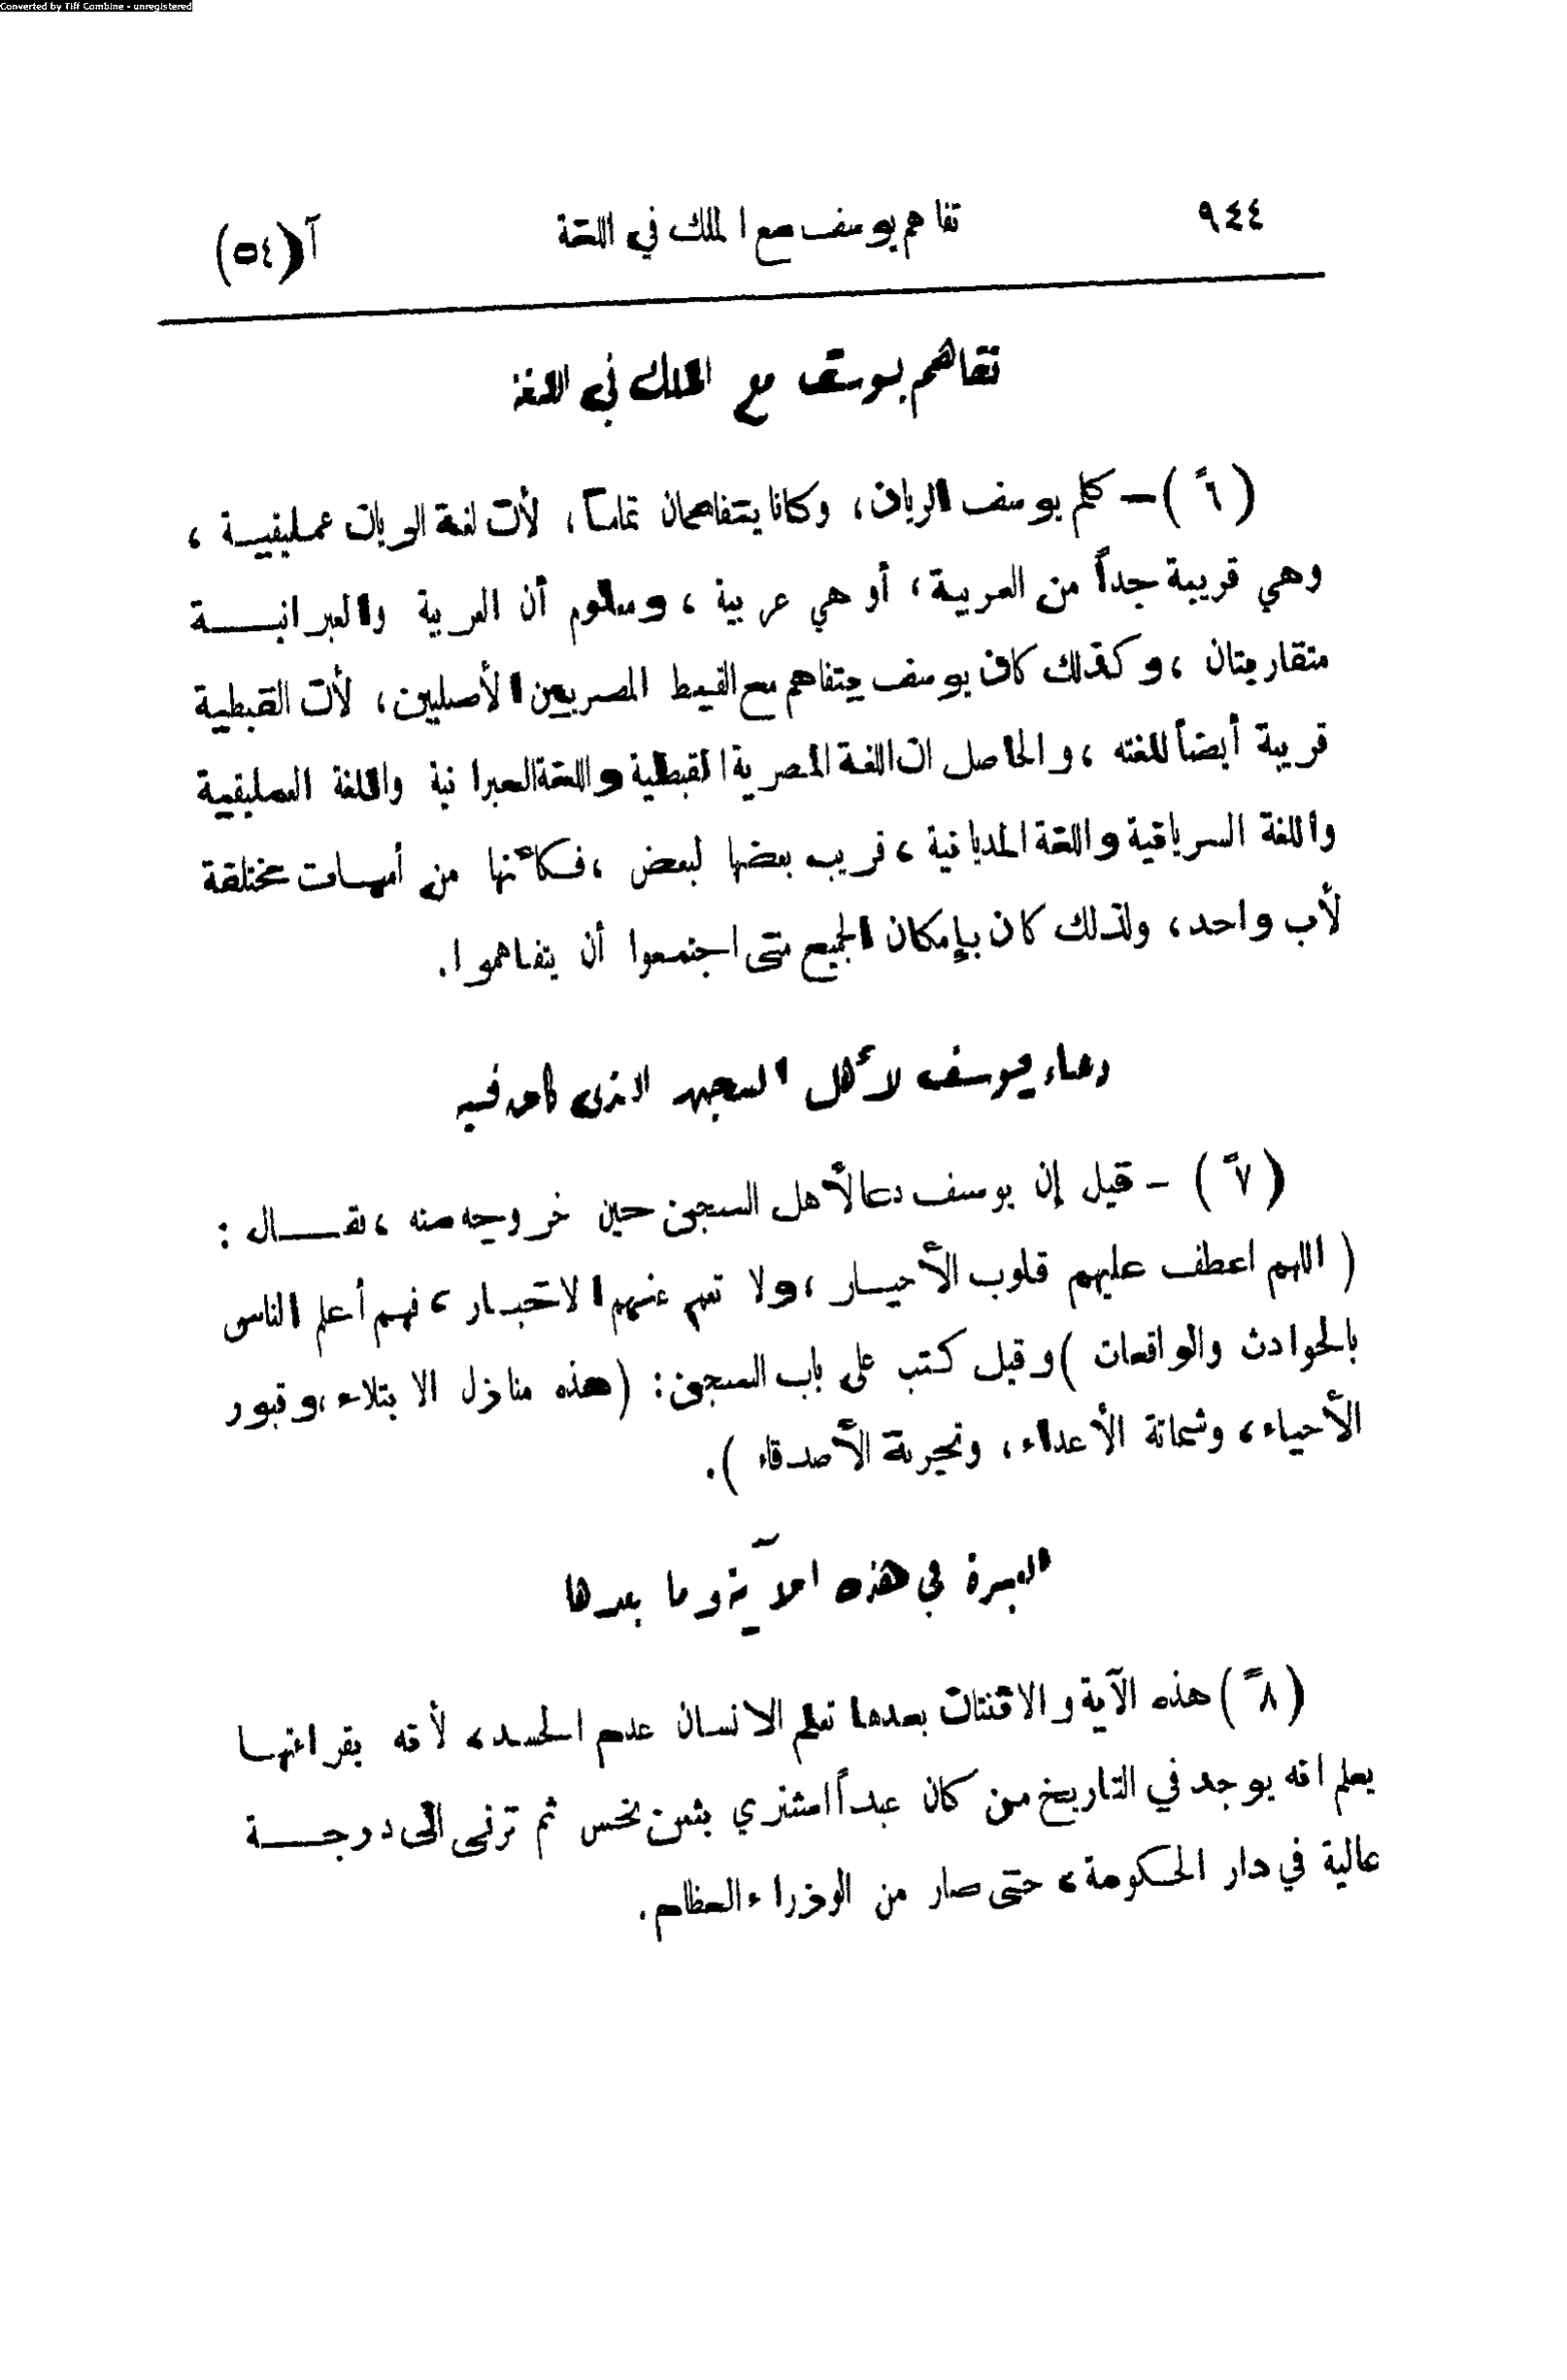 Converted by Tiff Combine - unregistered
٩٤٤ تفاهم يوسف مع الملك في اللغة آ (٥٤)
تفاهم يوسف مع الملك في اللغة
(٦ً) — كلم يوسف الريان، وكانا يتفاهمان تماماً، لأن لغة الريان عمليقية ،
وهي قريبة جداً من العربية، أو هي عربية ، ومعلوم أن العربية والعبرانيــــة
متقاربتان ، وكذلك كان يوسف يتفاهم مع القبط المصريين الأصليين، لأن القبطية
قريبة أيضاً للغته ، والحاصل ان اللغة المصرية القبطية واللغة العبرانية واللغة العمليقية
واللغة السريانية واللغة المديانية ، قريب بعضها لبعض ، فكأنها من أمهـات مختلفة
لأب واحد، ولذلك كان بإمكان الجميع متى اجتمعوا أن يتفاهموا.
دعاء يوسف لأهل السجن الذي كان فيه
(٧ً) – قيل إن يوسف دعا لأهل السجن حين خروجه منه ، فقــــال :
( اللهم اعطف عليهم قلوب الأخيـار ، ولا تعم عنهم الاخبـار ، فهـم أعلم الناس
بالحوادث والواقعات ) وقيل كتب على باب السجن: (هذه منازل الابتلاء ، وقبور
الأحياء، وشماتة الأعداء، وتجربة الأصدقاء ).
العبرة في هذه الآية وما بعدها
(٨ً) هذه الآية والاثنتان بعدها تعلم الانسان عدم الحسد، لأنه بقراءتهـا
يعلم انه يوجد في التاريخ من كان عبداً اشتري بثمن بخس ثم ترقى الى درجــــة
عالية في دار الحكومة ، حتى صار من الوزراء العظام.